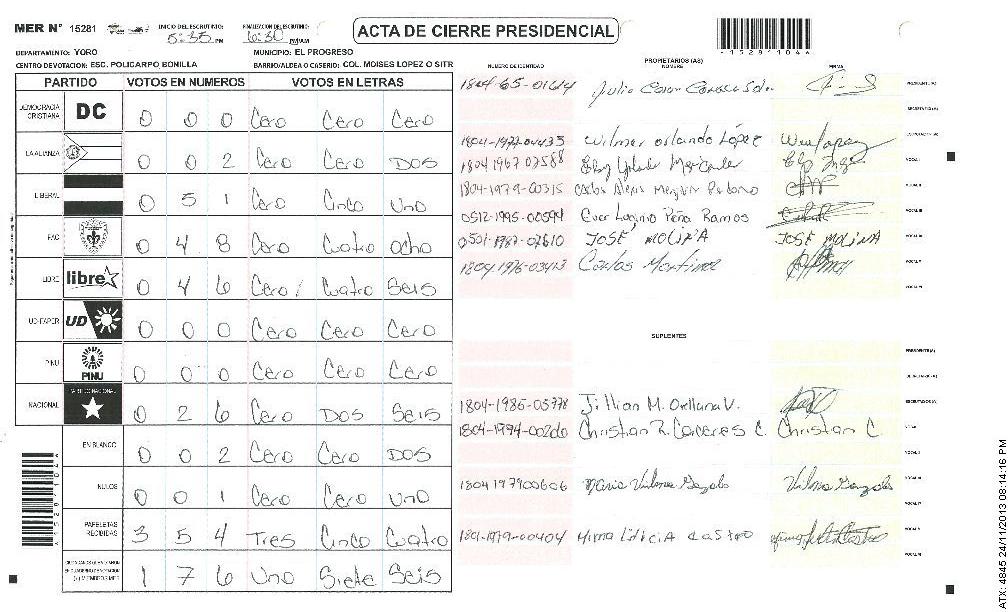 MER N° 15281
INICIO DEL ESCRUTINIO: 5:35 PM
FINALIZACION DEL ESCRUTINIO: 6:30 PM/AM
ACTA DE CIERRE PRESIDENCIAL
DEPARTAMENTO: YORO
MUNICIPIO: EL PROGRESO
CENTRO DE VOTACION: ESC. POLICARPO BONILLA
BARRIO/ALDEA O CASERIO: COL. MOISES LOPEZ O SITR
PARTIDO VOTOS EN NUMEROS VOTOS EN LETRAS
DEMOCRACIA CRISTIANA DC 0 0 0 Cero Cero Cero
LA ALIANZA 0 0 2 Cero Cero DOS
LIBERAL 0 5 1 Cero Cinco Uno
PAC 0 4 8 Cero Cuatro Ocho
LIBRE libre 0 4 6 Cero Cuatro Seis
UD-FAPER UD 0 0 0 Cero Cero Cero
PINU PINU 0 0 0 Cero Cero Cero
NACIONAL PARTIDO NACIONAL 0 2 6 Cero DOS Seis
EN BLANCO 0 0 2 Cero Cero DOS
NULOS 0 0 1 Cero Cero Uno
PAPELETAS RECIBIDAS 3 5 4 Tres Cinco Cuatro
1 7 6 Uno Siete Seis
NUMERO DE IDENTIDAD PROPIETARIOS (AS) NOMBRE FIRMA
1804-65-01614 Julio Cesar
1804-1977-04435 Wilmer Orlando López
1804 1967 02588
1804-1979-00315 Carlos Alexis
0512-1995-00594 Ever Peña Ramos
0501-1987-07610 JOSÉ MOLINA JOSÉ MOLINA
1804-1976-03413 Carlos Martinez
SUPLENTES
1804-1985-05778 Jillian M. Orellana V.
1804-1994-00260 Christian R. Caceres C. Christian C.
1804 197900606 Maria Vilma Gonzales Vilma Gonzales
1801-1979-00404 Mirna Leticia Castro
15281104
ATX: 4845 24/11/2013 08:14:16 PM